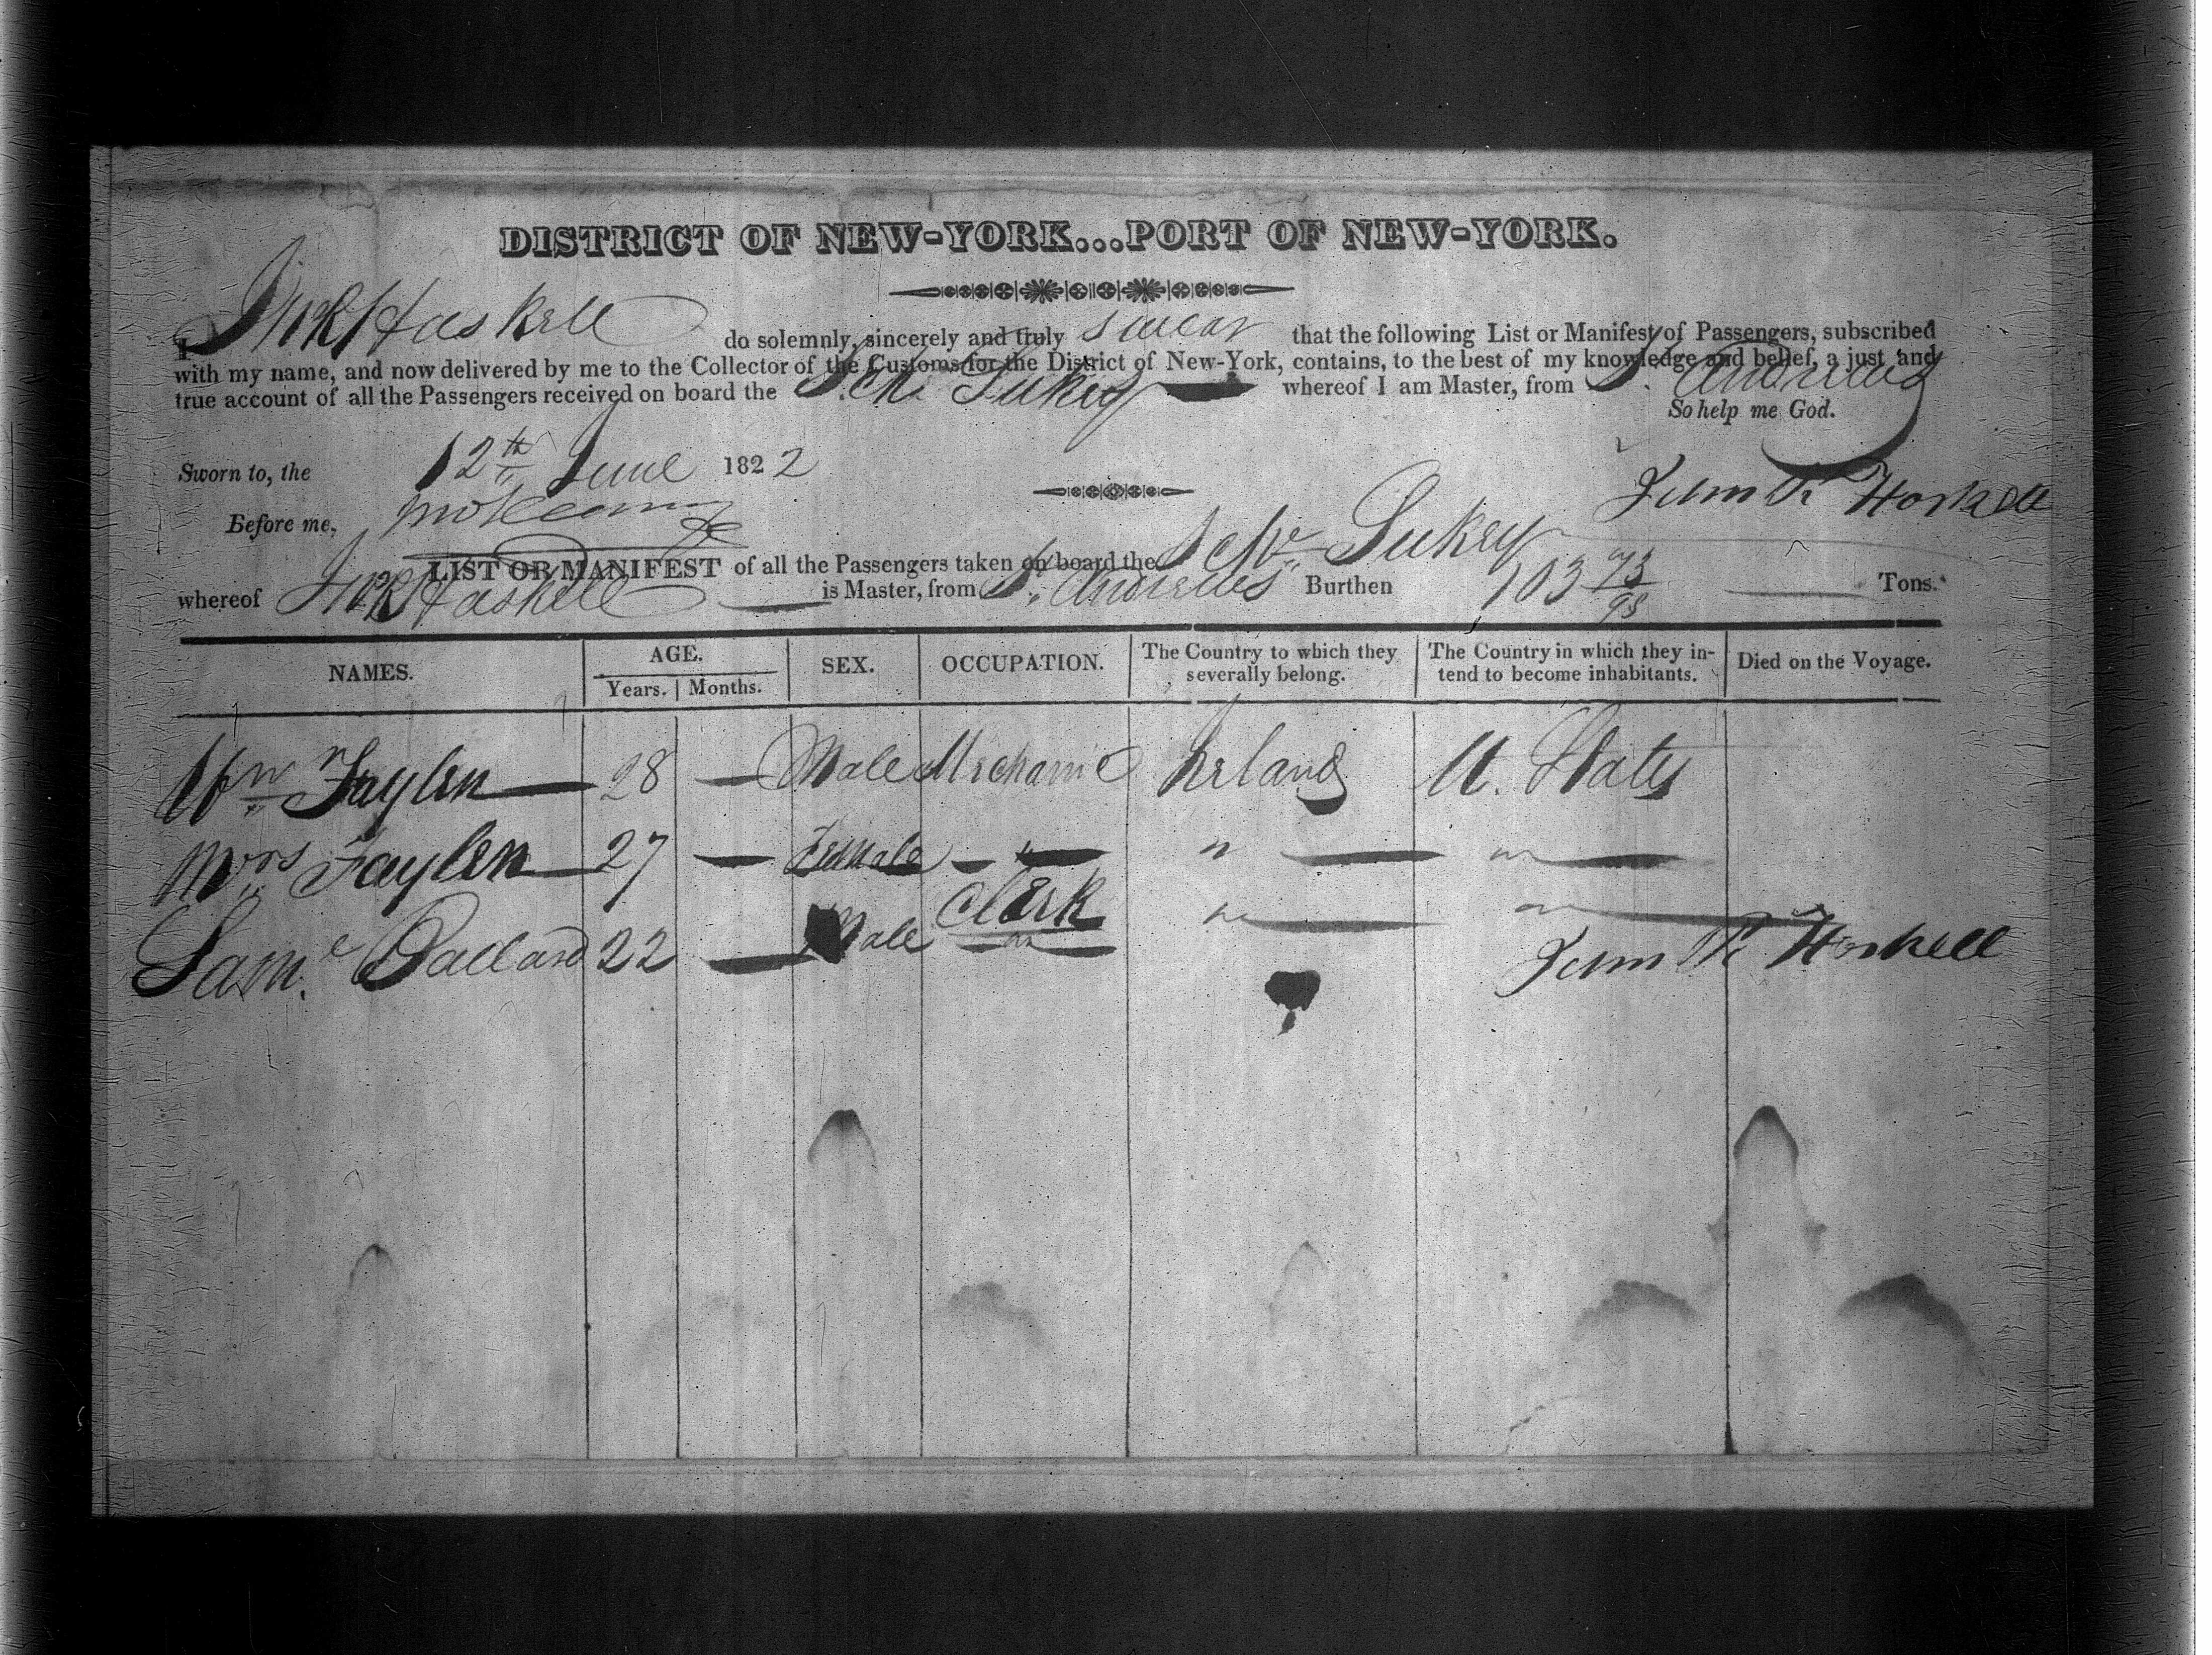 DISTRICT OF NEW-YORK...PORT OF NEW-YORK.
I Jno R Haskell do solemnly, sincerely and truly swear that the following List or Manifest of Passengers, subscribed
with my name, and now delivered by me to the Collector of the Customs for the District of New-York, contains, to the best of my knowledge and belief, a just and
true account of all the Passengers received on board the Schr Sukey whereof I am Master, from St. Andrews
So help me God.
Sworn to, the 12th June 1822
Before me,
John R Haskell
LIST OR MANIFEST of all the Passengers taken on board the Schr Sukey
whereof Jno R Haskell is Master, from St. Andrews Burthen 103 73/95 Tons.
NAMES. AGE. SEX. OCCUPATION. The Country to which they severally belong. The Country in which they intend to become inhabitants. Died on the Voyage.
Years. Months.
Wm Faylen 28 — Male Mechanic Ireland U. States
Mrs Faylen 27 — Female — " — " — " —
Clerk
Saml Ballard 22 — Male — " — " — " —
John R Haskell